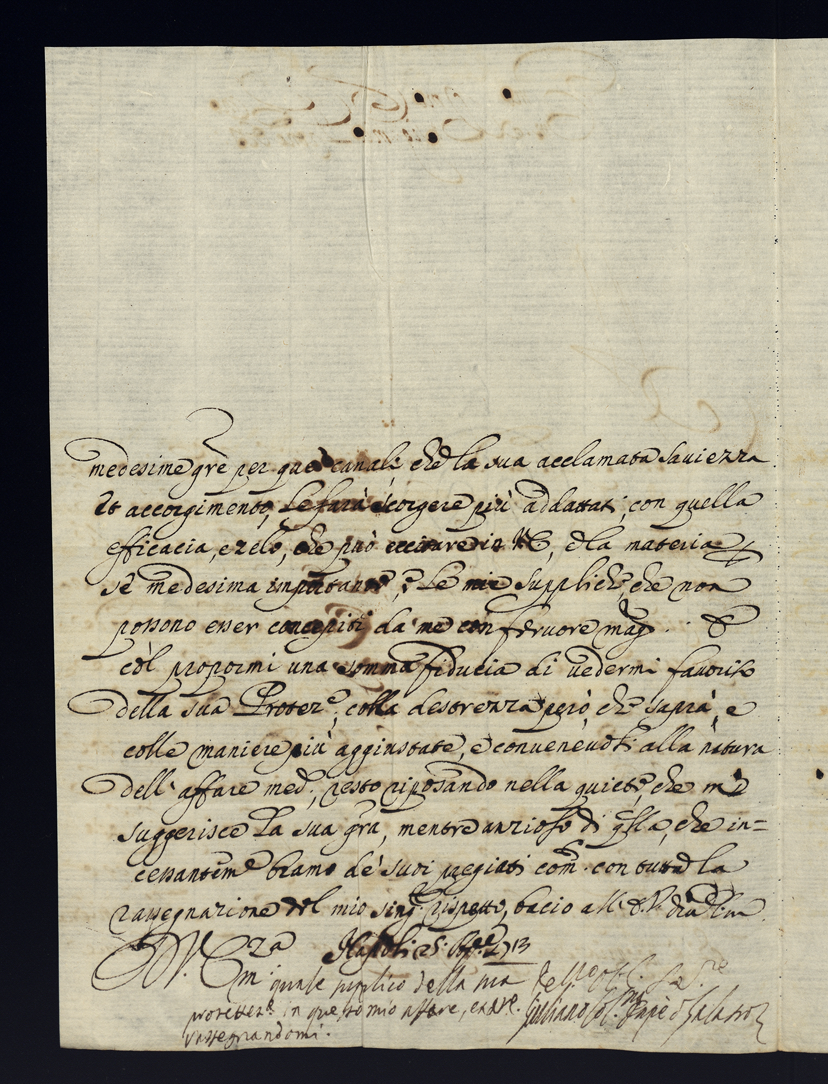 medesime gre per quei canali che la sua acclamata saviezza
et accorgimento, le farà scorgere più addattati, con quella
efficacia, e zelo, che può eccitare in VE, e la materia
sè medesima importante, e le mie suppliche, che non
possono esser concepiti da me con fervore mag.
còl propormi una somma fiducia di vedermi favorito
della sua Protez.e, colla destrezza però, che saprà, e
colle maniere più aggiustate, e convenevoli alla natura
dell' affare med., resto riposando nella quiete, che mi
suggerisce la sua gra, mentre anzioso di qlla, che in=
cessantem.e bramo de' suoi pregiati com. con tutta la
rassegnazione del mio sing. rispetto, bacio a
Di V. Napoli 1713
quale supplico della sua
protett.e in questo mio affare, e
rassegnandomi. Giuliano